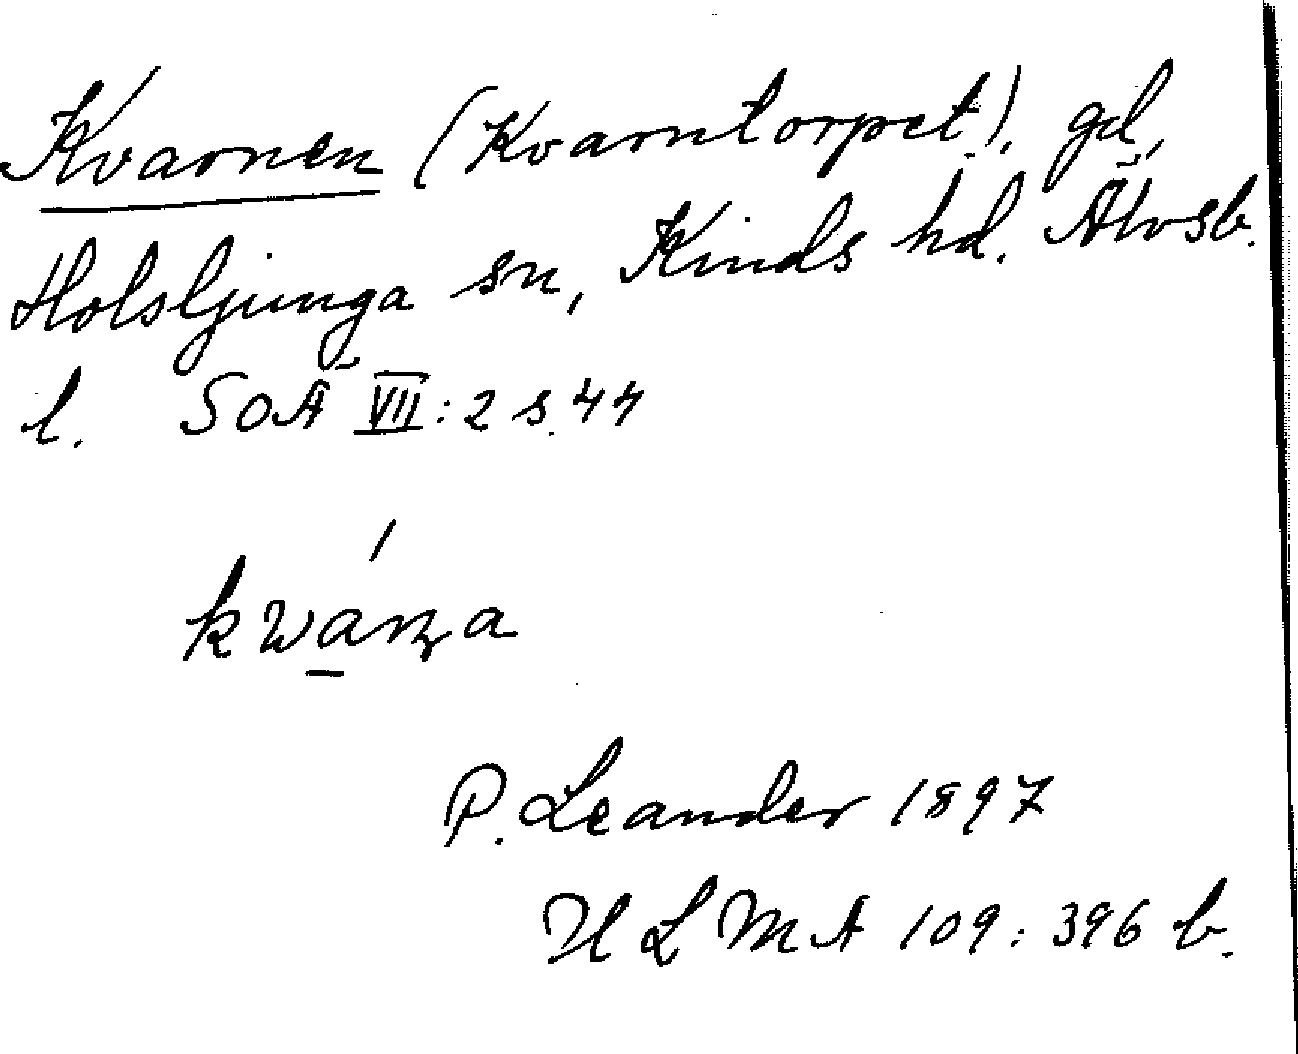 Kvarnen (Kvarntorpet), gd,
Holsljunga sn, Kinds hd. Älvsb.
l. SOÄ VII:2 s.44
kwáṉa
P. Leander 1897
ULMA 109:396 b.